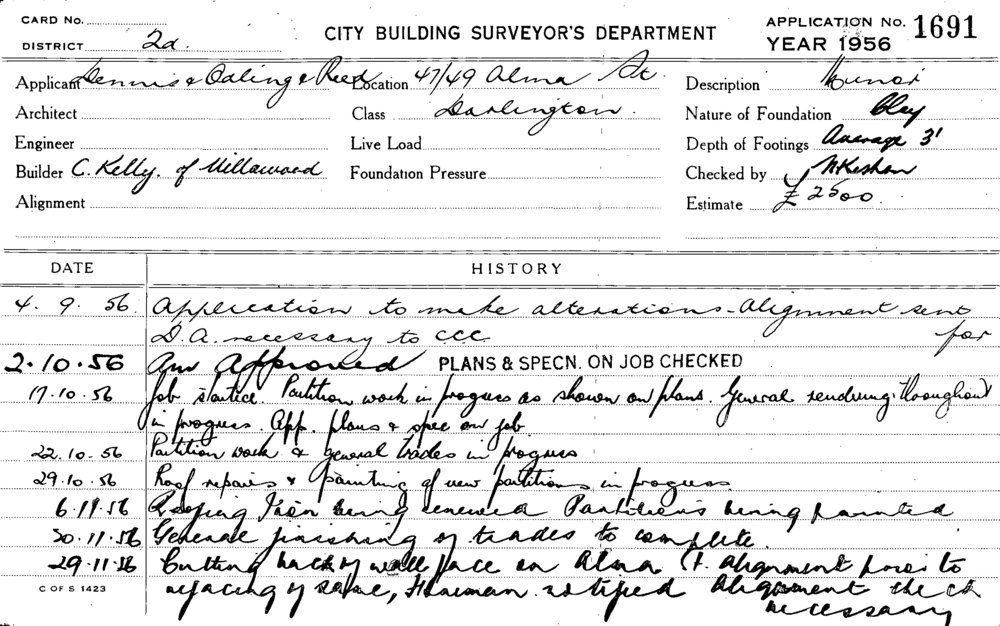 CARD No.
DISTRICT 2d.
CITY BUILDING SURVEYOR'S DEPARTMENT
APPLICATION No. 1691
YEAR 1956
Applicant Dennis & Reed
Location 47/49 Alma St.
Description Minor
Architect
Class Darlington.
Nature of Foundation Clay
Engineer
Live Load
Depth of Footings Average 3'
Builder C. Kelly. of Villawood
Foundation Pressure
Checked by
Alignment
Estimate £2500.
DATE HISTORY
4. 9. 56 Application to make alterations - Alignment sent for
D.A. necessary to CCC
2.10.56 Approved PLANS & SPECN. ON JOB CHECKED
17.10.56 Job started. Partition work in progress as shown on plans. General rendering throughout
in progress. App. plans & spec on job
22.10.56 Partition work & general trades in progress
29.10.56 Roof repairs & painting of new partitions in progress
6.11.56 Roofing Iron being renewed Partitions being painted
General finishing of trades to complete.
29.11.56 Cutting back of wall face on Alma St. alignment prior to
refacing of same, notified Alignment check
necessary
C OF S 1423